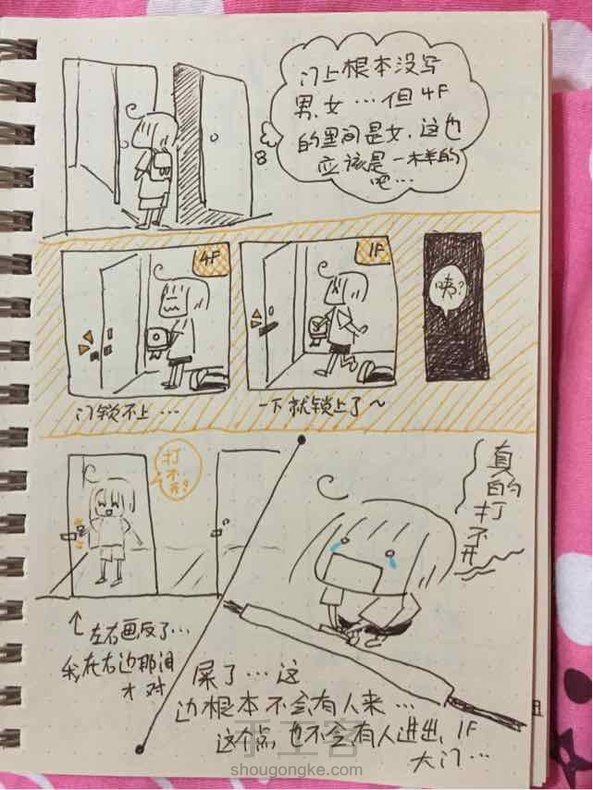 门上根本没写
男、女…但4F
的里间是女,这也
应该是一样的
吧…
4F
1F
咦?
门锁不上…
一下就锁上了~
打
不
开?
真
的
打
不
开
左右画反了…
我在右边那间
才对
屎了…这
边根本不会有人来…
这个点,也不会有人进出1F
大门…
手工客
shougongke.com